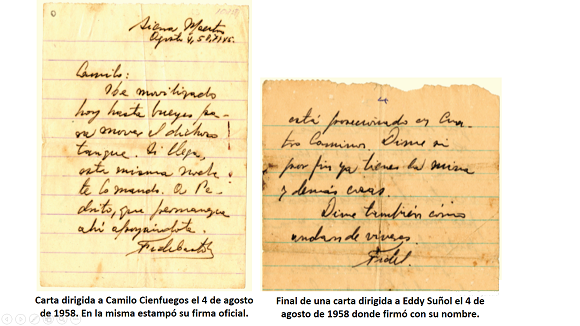 Sierra Maestra
Agosto 4, 58,
Camilo:
He movilizado
hoy hasta bueyes pa-
ra mover el dichoso
tanque. Si llega,
esta misma noche
te lo mando. A Pe-
drito, que permanezca
ahí apoyándote.
Fidel Castro
está posesionado en Cua-
tro Caminos. Dime si
por fin ya tienes la mina
y demás cosas.
Dime también cómo
andan de víveres.
Fidel
Carta dirigida a Camilo Cienfuegos el 4 de agosto
de 1958. En la misma estampó su firma oficial.
Final de una carta dirigida a Eddy Suñol el 4 de
agosto de 1958 donde firmó con su nombre.